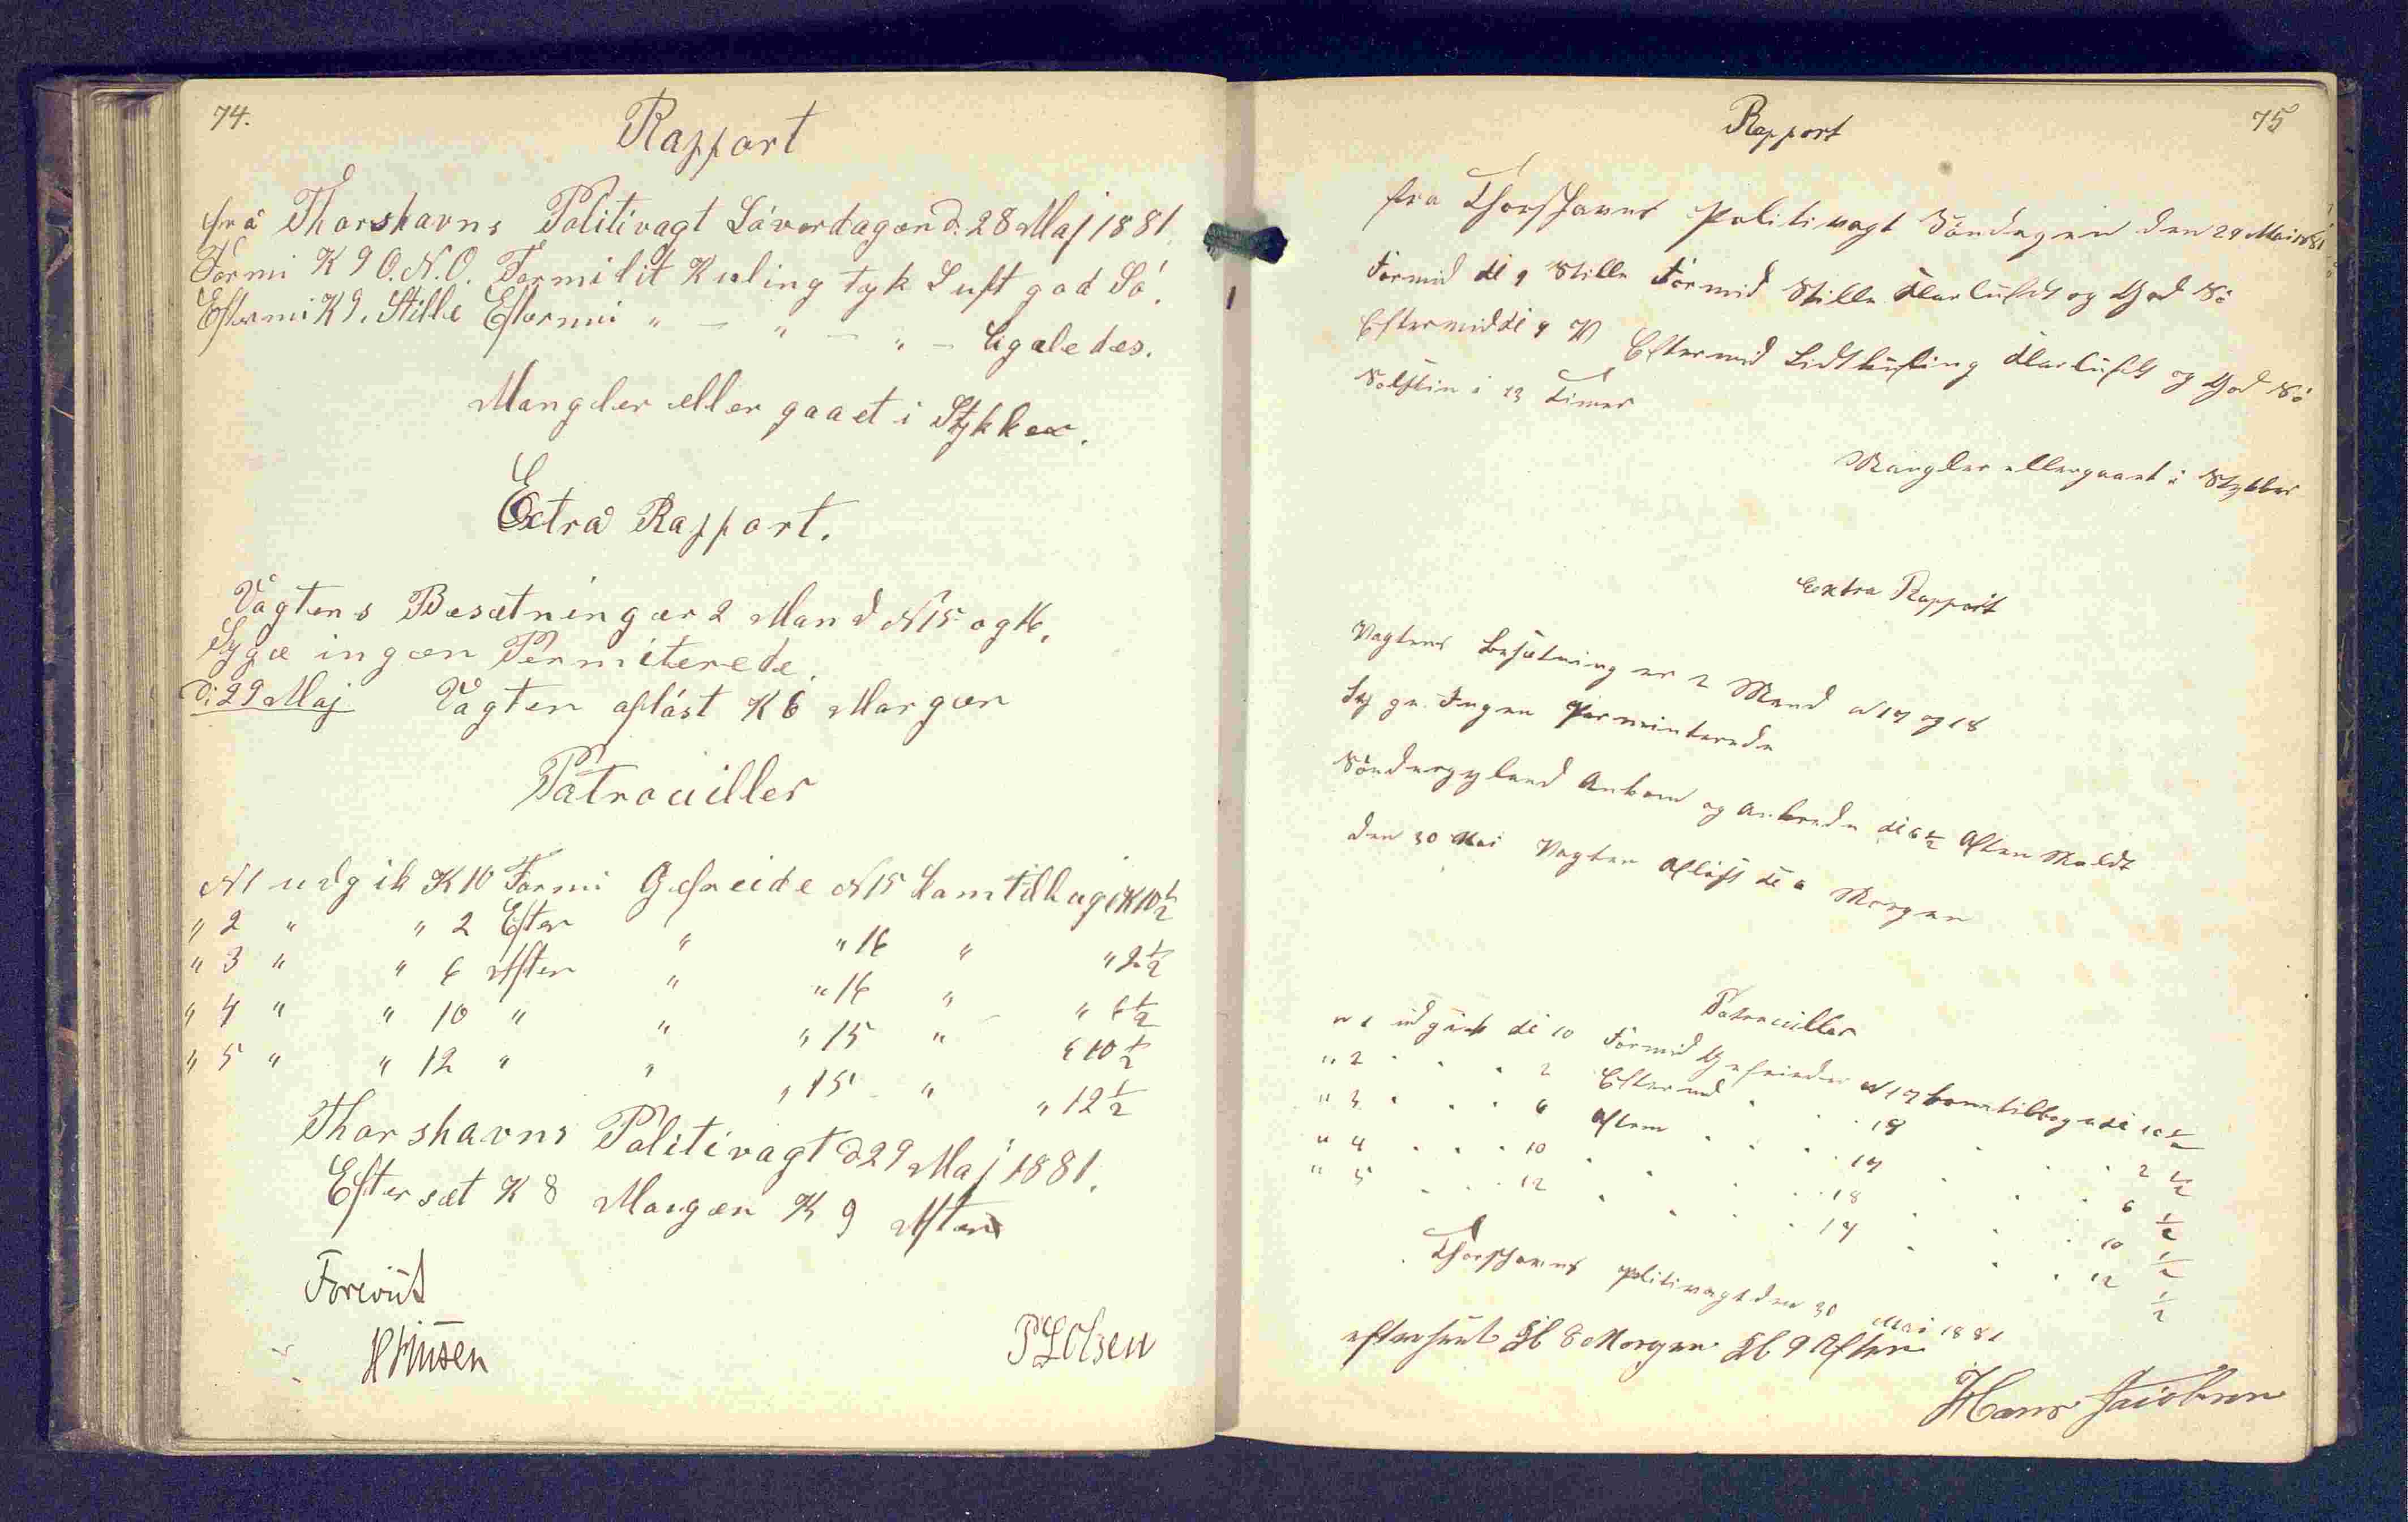 74.
Rapport
fra Thorshavns Politivagt Löverdagen d. 28 Maj 1881.
Formi K 9 O.N.O. Formi lit Kuling tyk Luft god Sö.
Eftermi K 9. Stille Eftermi " — " — " — ligeledes.
Mangler eller gaaet i Stykker.
Extra Rapport.
Vagtens Besætning er 2 Mand N 15 og 16.
Syge ingen Permiterede.
D: 29 Maj Vagten aflöst K 6 Morgen
Patrouiller
N 1 udgik K 10 Formi Gefreide N 15 kom tilbage K 10 1/2
" 2 " " 2 Efter " " 16 " " 2 1/2
" 3 " " 6 Aften " " 16 " " 6 1/2
" 4 " " 10 " " " 15 " " 10 1/2
" 5 " " 12 " " " 15 " " 12 1/2
Thorshavns Politivagt d 29 Maj 1881.
Efterset K 8 Morgen K 9 Aften
Forevist
P Olsen
75
Rapport
fra Thorshavns Politivagt Söndagen den 29 Mai 1881
Formid Kl 9 Stille Formid Stille Klarluft og God Sö
Eftermid Kl 9 V Eftermid Lidt Kuling Klarluft og God Sö
Solskin i 13 Timer
Mangler eller gaaet i Stykker
Extra Rapport
Vagtens Besætning er 2 Mand N 17 og 18
Syge Ingen Permiterede
Ankom og Kl 6 1/2 Aften
den 30 Mai Vagten Aflöst Kl 6 Morgen
Patrouiller
N 1 udgik Kl 10 Formid Gefreider N 17 kom tilbage Kl 10 1/2
" 2 . . . 2 Eftermid . . 18 . . . 2 1/2
" 3 . . . 6 Aften . . . 17 . . . 6 1/2
" 4 . . . 10 . . . 18 . . . 10 1/2
" 5 . . . 12 . . . 17 . . . 12 1/2
Thorshavns Politivagt den 30 Mai 1881
efterseet Kl 8 Morgen Kl 9 Aften
Hans Jacobsen